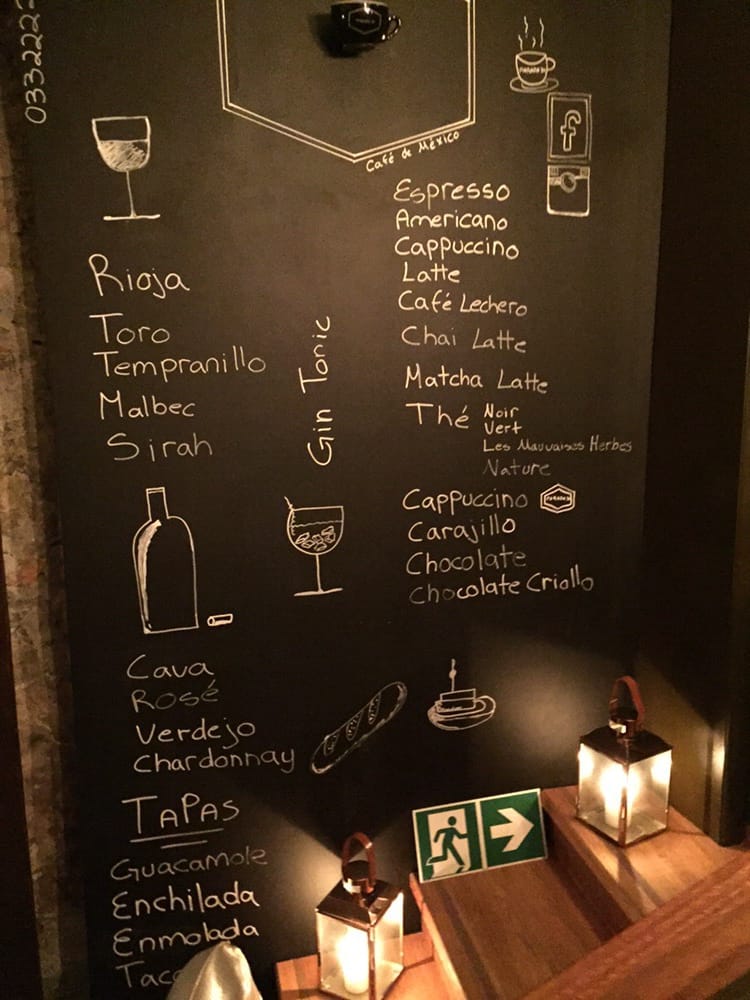 0332222
Café de México
f
Espresso
Americano
Cappuccino
Latte
Café Lechero
Chai Latte
Matcha Latte
Thé Noir
Vert
Les Mauvaises Herbes
Nature
Cappuccino
Carajillo
Chocolate
Chocolate Criollo
Rioja
Toro
Tempranillo
Malbec
Sirah
Gin Tonic
Cava
Rosé
Verdejo
Chardonnay
TAPAS
Guacamole
Enchilada
Enmolada